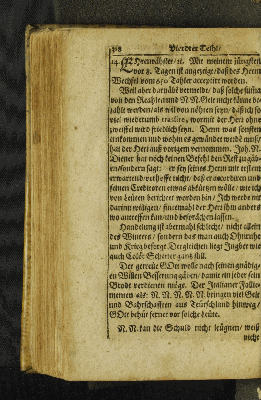 318 Vierdter Theil/
14. EHrenvester/ rc. Mit meinem jüngsten
vor 8. Tagen ist angezeigt/ daß des Herrn
Wechsel vom 650 Thaler acceptirt worden.
Weil aber darneben vermeldt/ daß solche
von den Realisten und N. N. Geld nicht könne be-
zahlt werden/ als will von nöthen seyn/ daß sich so
viel wiederumb trassire, wormit der Herr ohne
zweiffel wird friedlich seyn. Denn was sonsten
einkommen und wohin es gewendet werde muß/
hat der Herr auß vorigem vernommen. Joh. N.
Diener hat noch keinen Befehl den Rest zu gäb-
en/ sondern sagt: er sey seines Herrn mit erstem
erwartend/ verhoffe nicht/ daß er accordiren und
seinen Creditoren etwas abkürtzen wölle/ wie ich
von deuten berichtet worden bin/ Ich werde mit
darinn willigen/ sintemahl der Herr ihn anders
wo antreffen kan/ und befördchen lassen.
Handelung ist abermahl schlecht/ nicht allein
des Winters/ sondern das man auch Ohnruhe
und Krieg besorgt. Dergleichen liegt Ingber wie
auch Colör. Scherter gantz still.
Der getreue GOtt wolle nach seinem gnädig-
en Willen Besserung geben/ damit ein jeder sein
Brodt verdienen möge. Der Italianer Fallie-
menten als: N. N. N. N. N. bringen viel Geld
und Bahrschafften aus Teutschland hinweg/
GOtt behüt ferner vor solche Leute.
N. N. kan die Schuld nicht leugnen/ weiß
nicht